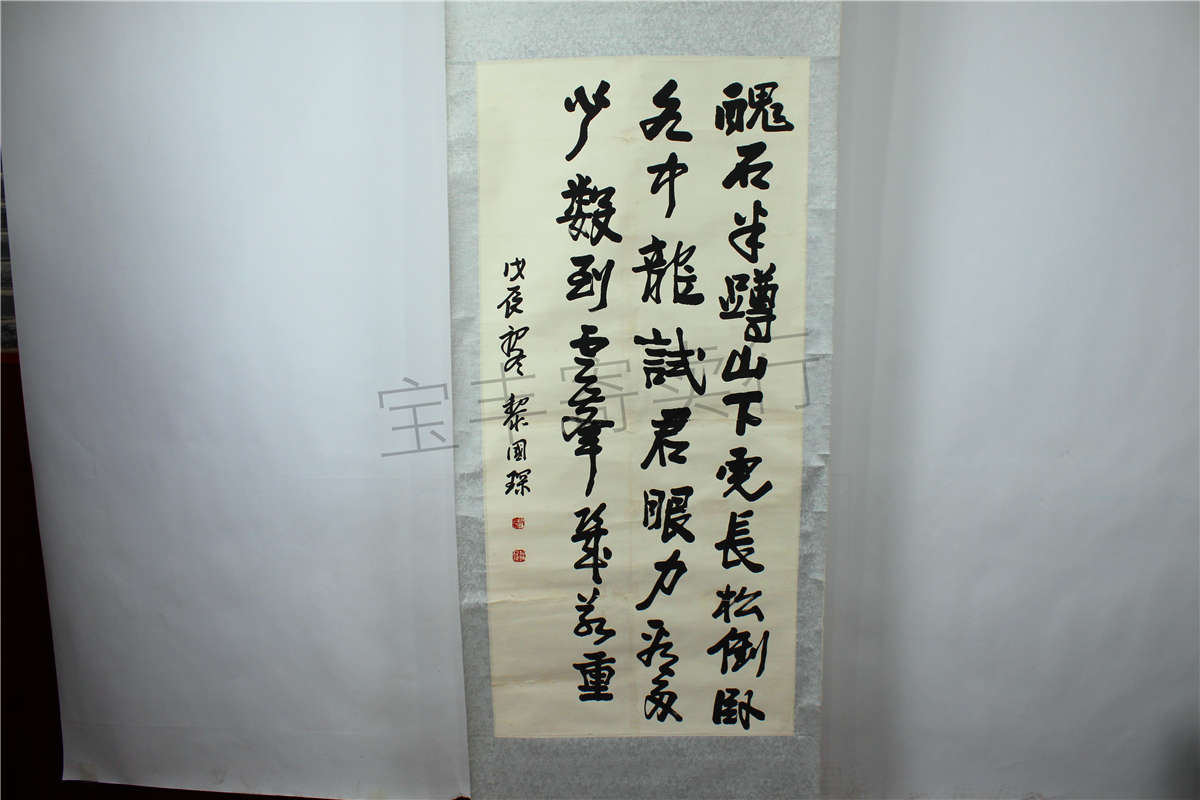 醜石半蹲山下虎長松倒臥
水中龍試君眼力看多
少數到雲峯第幾重
戊辰初冬黎國琛
宝丰寄卖行